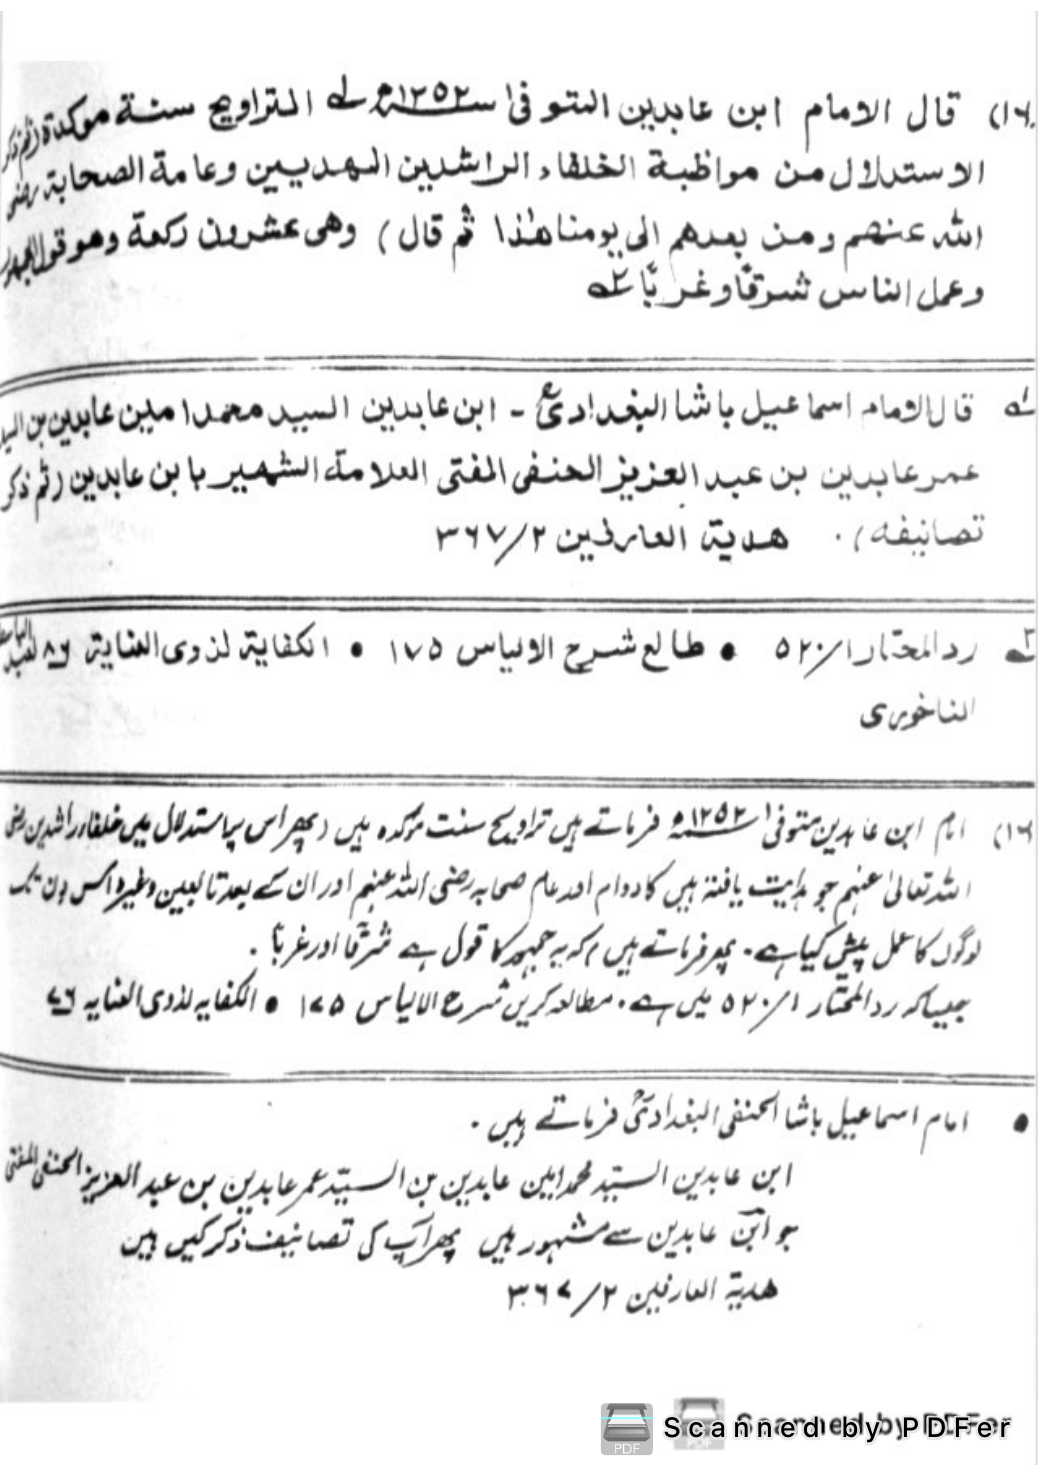 (۱۶) قال الامام ابن عابدين المتوفى ۱۲۵۲ھ لہ التراويح سنة موكدة (ثم ذكر
الاستدلال من مواظبة الخلفاء الراشدين المهديين وعامة الصحابة رضى
الله عنهم ومن بعدهم الى يومنا هذا ثم قال) وهى عشرون ركعة وهو قول الجمهور
وعمل الناس شرقًا وغربًا ۲ہ
۱ہ قال الامام اسماعيل باشا البغدادىؒ - ابن عابدين السيد محمد امين عابدين بن السيد
عمر عابدين بن عبد العزيز الحنفى المفتى العلامة الشهير بابن عابدين (ثم ذكر
تصانيفه). هدية العارفين ۳۶۷/۲
۲ہ رد المحتار ۵۲۰/۱ • طالع شرح الالياس ۱۷۵ • الكفاية لذوى العناية ۸۶ لعبد الباسط
الفاخورى
(۱۶) امام ابن عابدین متوفیٰ ۱۲۵۲ھ فرماتے ہیں تراویح سنت موکدہ ہیں (پھر اس پر استدلال میں خلفاء راشدین رضی
اللہ تعالیٰ عنہم جو ہدایت یافتہ ہیں کا دوام اور عام صحابہ رضی اللہ عنہم اور ان کے بعد تابعین وغیرہ اس دن تک
لوگوں کا عمل پیش کیا ہے۔ پھر فرماتے ہیں) کہ یہ جمہور کا قول ہے شرقًا اور غربًا۔
جیسا کہ رد المحتار ۵۲۰/۱ میں ہے۔ مطالعہ کریں شرح الالیاس ۱۷۵ • الکفایہ لذوی العنایہ ۷۶
• امام اسماعیل باشا الحنفی البغدادیؒ فرماتے ہیں۔
ابن عابدین السیّد محمد امین عابدین بن السیّد عمر عابدین بن عبد العزیز الحنفی المفتی
جو ابن عابدین سے مشہور ہیں پھر آپ کی تصانیف ذکر کیں ہیں
ھدیۃ العارفین ۳۶۷/۲
Scanned by PDFer
Scanned by PDFer